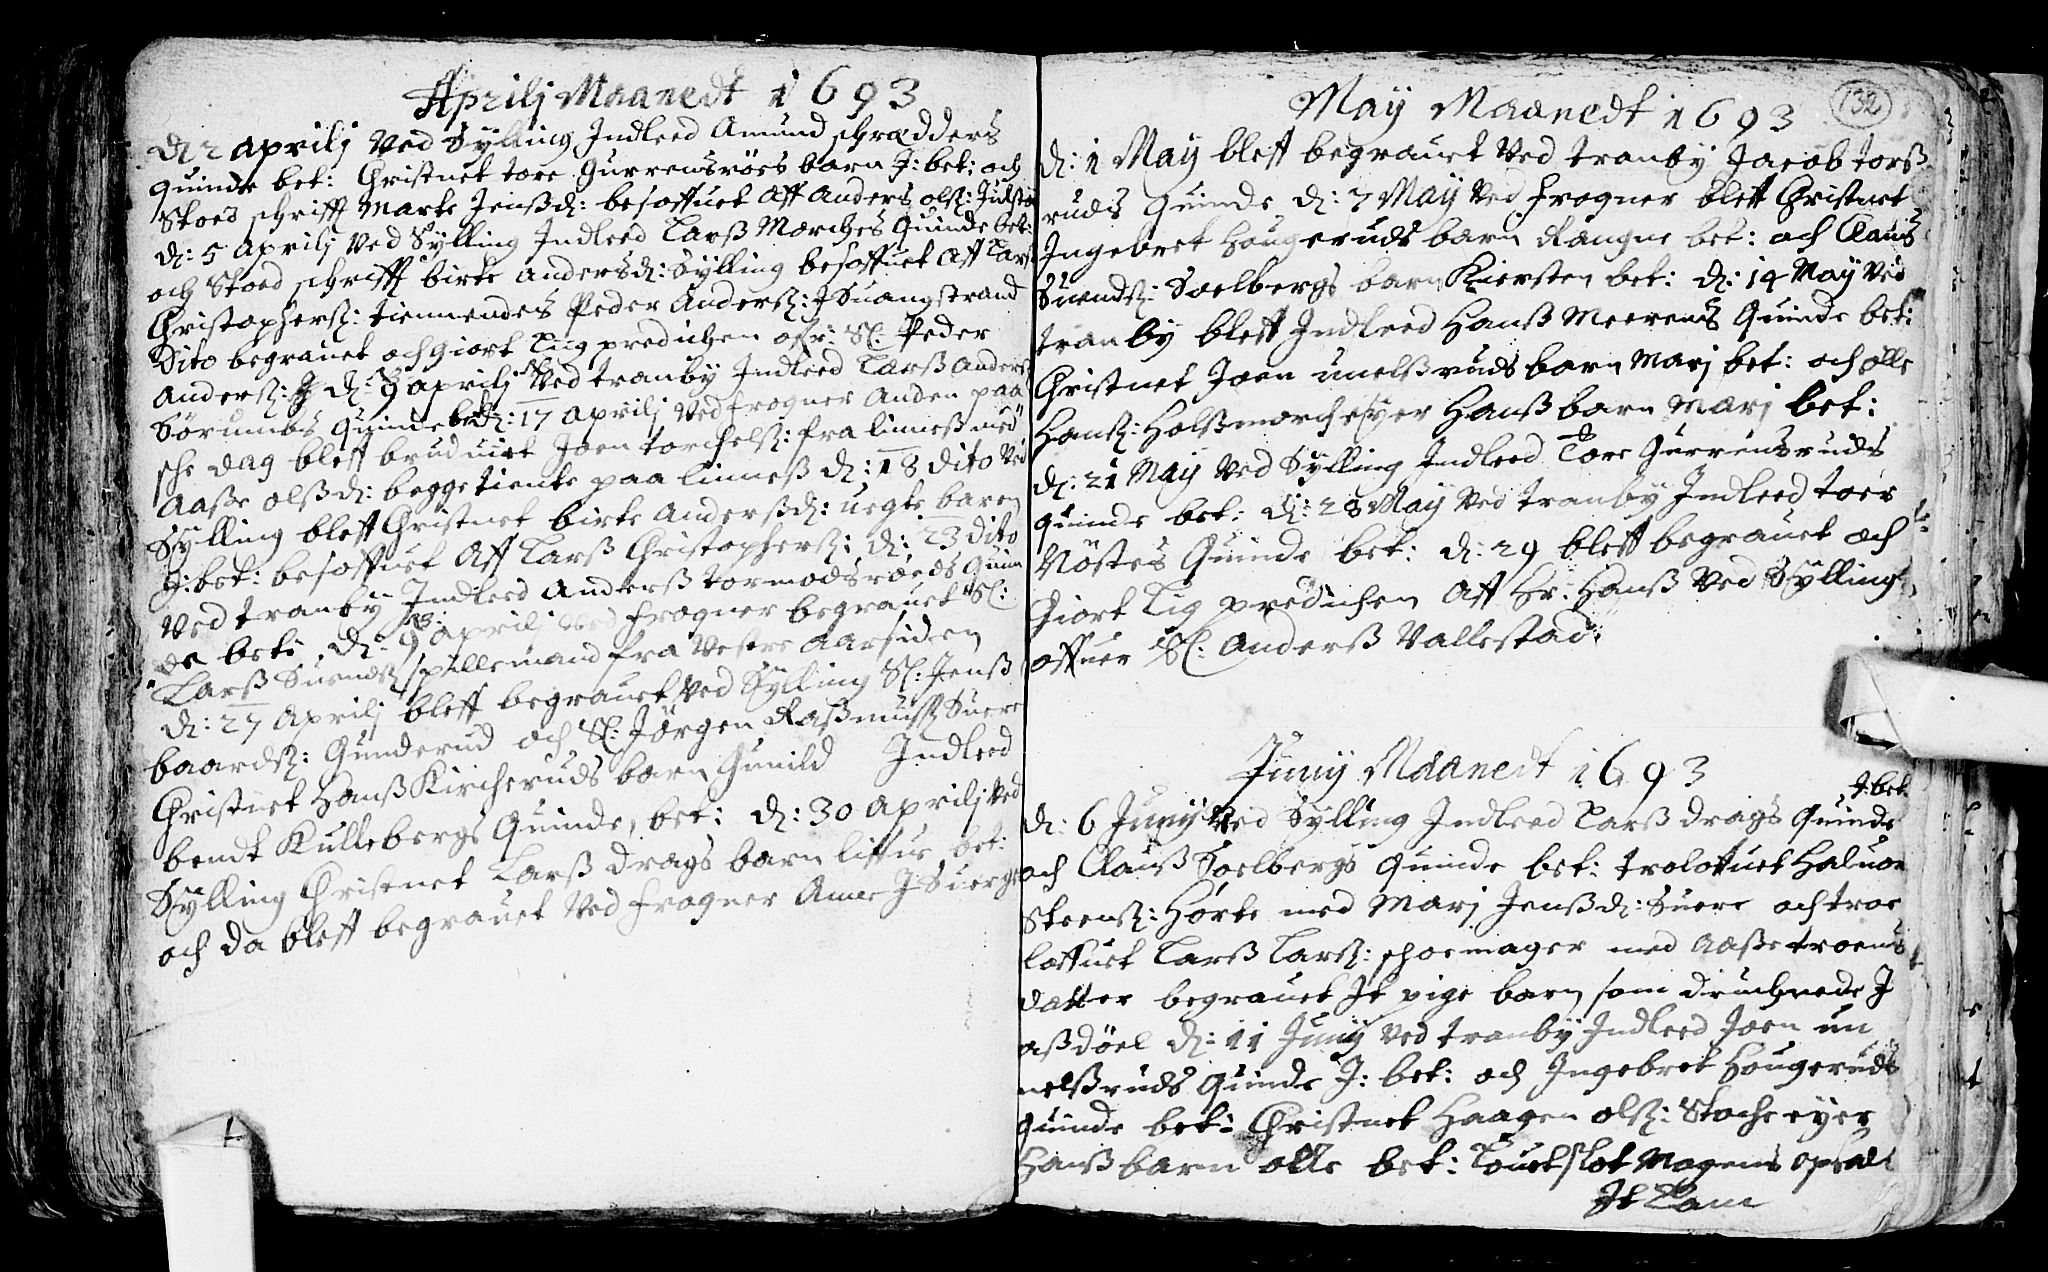 Aprilj Maanedt 1693
d: 2 aprilj Ved Sylling Indleed Amund schrædders
quinde bet: Christnet tore Gurrensröes barn J: bet: och
stoed schrifft Marte Jenßd: besoffuet Aff Anders olß:
d: 5 Aprilj Ved Sylling Indleed Larß Morches Quinde bet:
och stoed schrifft birte andersd: Sylling besoffuet Aff Larß
Christophersß: tiennendes Peder Anderß: J Suangstrand
Dito begrauet och giort Liig predichen ofr: Sl: Peder
Anderß: J d: 9 aprilj Ved tranby Indleed Larß Anderß
Sörumbs Quinde bet: d: 17 aprilj Ved frogner Anden paa
sche dag bleff bruduiet Joen torchelß: fra linneß med
Aaße olßd: begge tiente paa linneß d: 18 dito Ved
Sylling bleff Christnet birte Anderßd: uegte baren
J: bet: besoffuet Aff Larß Christopherß: d: 23 dito
Ved tranby Indleed Anderß tormodsröeds Quin
de bet: d: 9 aprilj Ved frogner begrauet Sl:
Larß Suendß spillemand fra Vestre Aarsideen
d: 27 Aprilj bleff begrauet Ved Sylling Sl: Jenß
baardß: Gunderud och Sl: Jörgen Raßmusß Suere
Christnet Hanß Kircheruds barn Gunild Indleed
bendt Kullebergs Quinde, bet: d: 30 Aprilj Ved
Sylling Christnet Larß drags barn liffue bet:
och da bleff begrauet Ved frogner Anne J
May Maanedt 1693
132
d: 1 May bleff begrauet Ved tranby Jacob torß
ruds Quinde d: 7 May Ved frogner bleff Christnet
Ingebret Hougeruds barn Rangne bet: och Clauß
Suendß: Soelbergs barn Kiersten bet: d: 14 May Ved
tranby bleff Indleed Hanß Meerens Quinde bet:
Christnet Joen unelßruds barn Marj bet: och olle
Hanß: Holßmorchejer Hanß barn Marj bet:
d: 21 May Ved Sylling Indleed Tore Guerrensruds
quinde bet: d: 28 May Ved tranby Indleed toer
Nöstes Quinde bet: d: 29 bleff begrauet och
Giort Lig predichen Aff Hr: Hanß Ved Sylling
offuer Sl: Anderß Vallestad:
Junij Maanedt 1693
J: bet:
d: 6 Junij Ved Sylling Indleed Larß drags Quinde
och Clauß Soelbergs Quinde bet: troloffuet Haluor
Steenß: Hörte med Marj Jenßd: Suere och troe
loffuet Larß Larß: schoemager med Aaße troens
datter begrauet It pige barn som druchnede J
aßdöel d: 11 Junij Ved tranby Indleed Joen un
nelßruds Quinde J: bet: och Ingebret Hougeruds
Quinde bet: Christnet Haagen olß: Stocheeyer
Hanß barn olle bet: Mogens opsal
It Lam